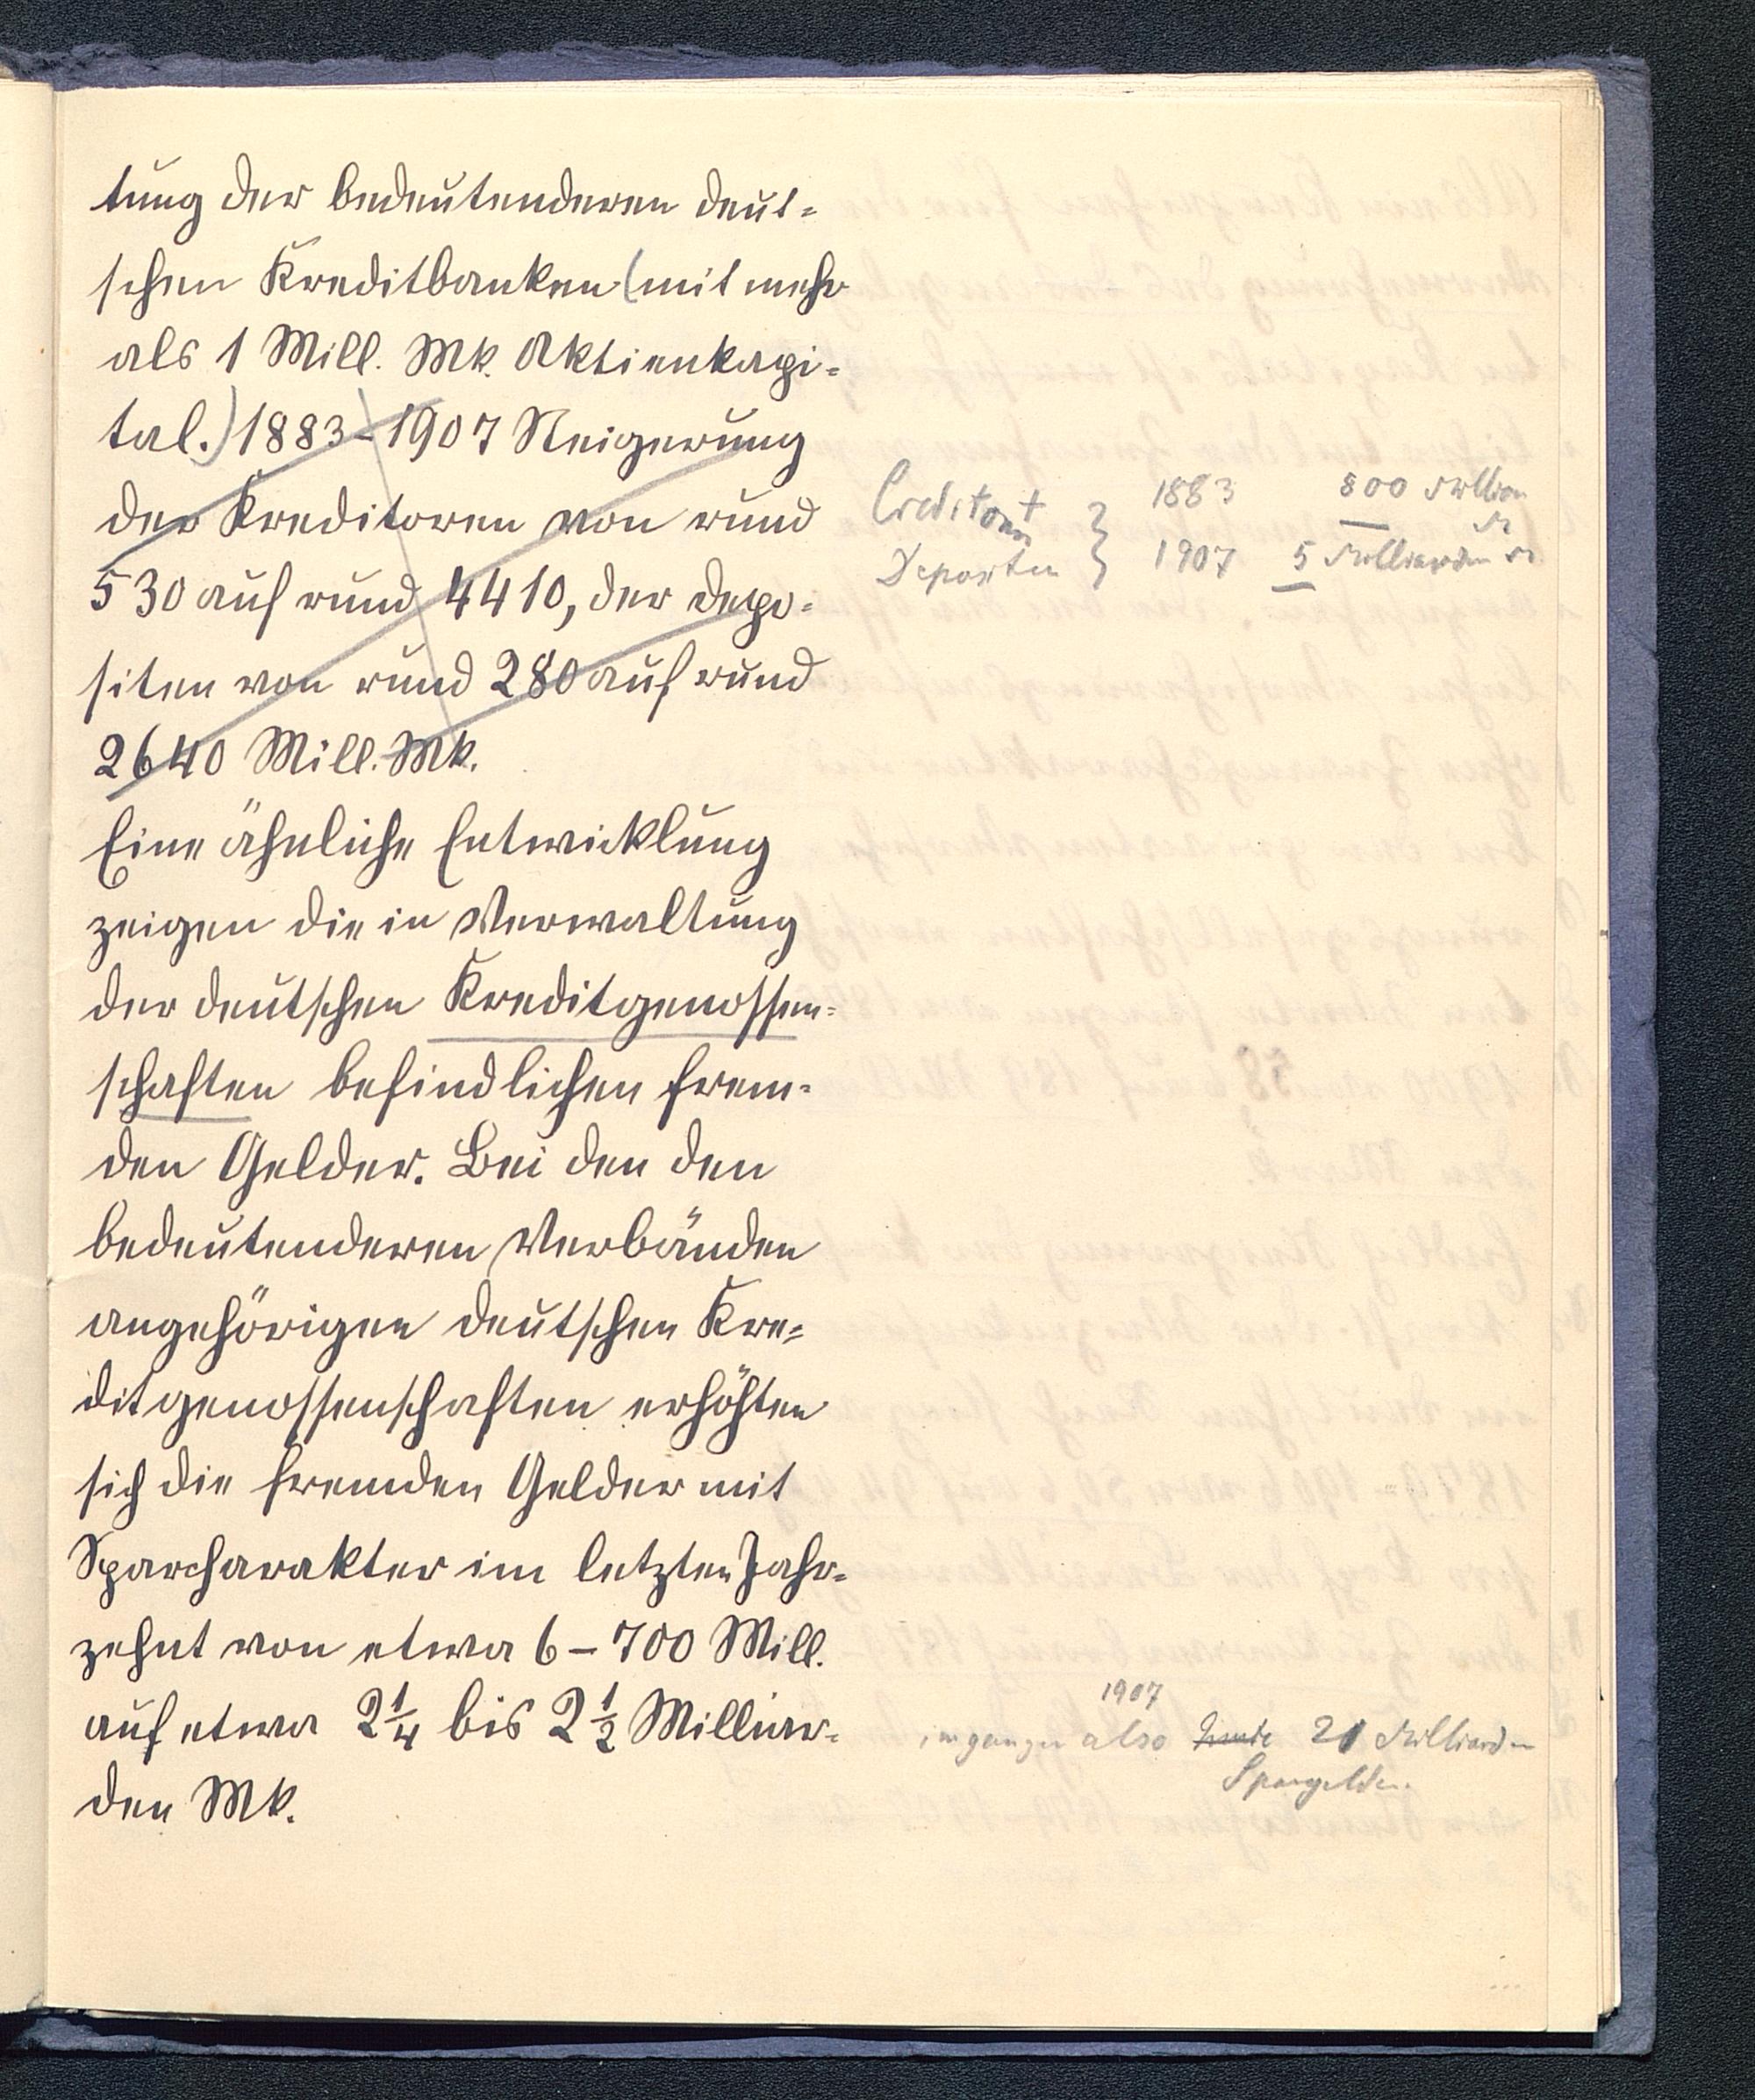 tung der bedeutenderen deut-
schen Kreditbanken (mit mehr
als 1 Mill. Mk. Aktienkapi-
tal.) 1883-1907 Steigerung
der Kreditoren von rund
530 auf rund 4410, der Depo-
siten von rund 280 auf rund
2640 Mill. Mk.
Creditoren + 1883 800 Million M
Depositen } 1907 5 Milliarden M
Eine ähnliche Entwicklung
zeigen die in Verwaltung
der deutschen Kreditgenossen-
schaften befindlichen frem-
den Gelder. Bei den den
bedeutenderen Verbänden
angehörigen deutschen Kre-
ditgenossenschaften erhöhten
sich die fremden Gelder mit
Sparcharakter im letzten Jahr-
zehnt von etwa 6-700 Mill.
auf etwa 2 1/4 bis 2 1/2 Milliar-
den Mk.
1907
im ganzen also heute 21 Milliarden
Spargelder.